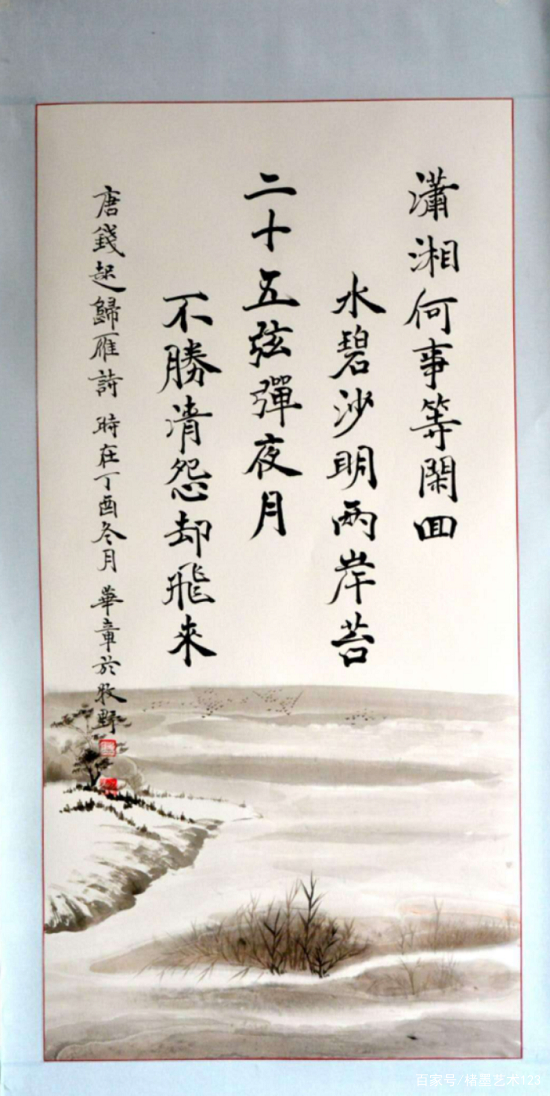 潇湘何事等閑回
水碧沙明两岸苔
二十五弦彈夜月
不勝清怨却飛來
唐錢起歸雁詩 時在丁酉冬月 華章於牧野
百家号/楮墨艺术123